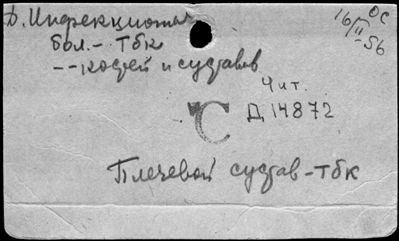 D. Инфекцион
бол. - тбк
-- костей и суставов
16/II-56
ОС
Чит.
Д 14872
С
Плечевой сустав-тбк